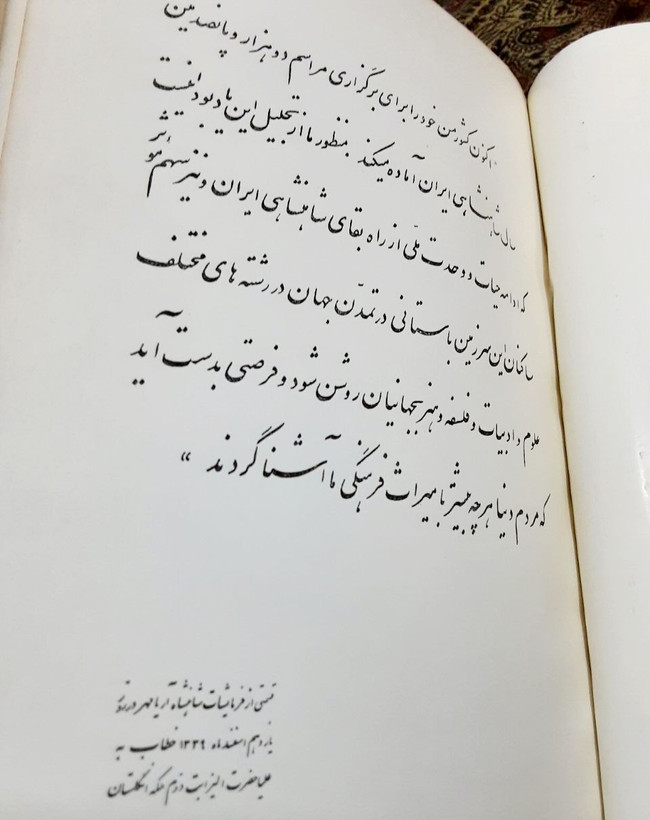 اکنون کشور من خود را برای برگزاری مراسم دو هزار و پانصدمین
سال شاهنشاهی ایران آماده میکند. منظور ما از تجلیل این یادبود اینست
که ادامه حیات و وحدت ملّی از راه بقای شاهنشاهی ایران و نیز سهم مؤثر
ساکنان این سرزمین باستانی در تمدّن جهان در رشته های مختلف
علوم و ادبیات و فلسفه و هنر بجهانیان روشن شود و فرصتی بدست آید
که مردم دنیا هرچه بیشتر با میراث فرهنگی ما آشنا گردند »
قسمتی از فرمایشات شاهنشاه آریامهر در روز
یازدهم اسفندماه ۱۳۳۹ خطاب به
علیاحضرت الیزابت دوّم ملکه انگلستان